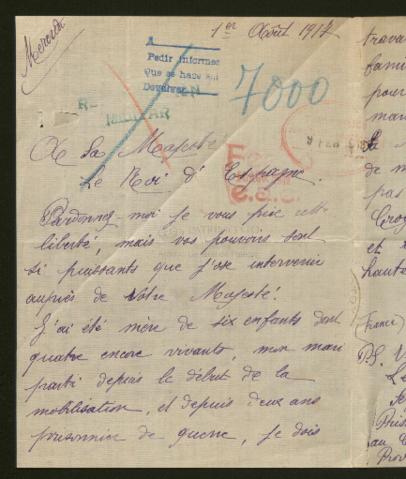 Mercredi
1er Août 1917
A
Pedir informes
Que se hace
Devolver
7000
A Sa Majesté
Le Roi d'Espagne.
Pardonnez-moi je vous prie cette
liberté, mais vos pouvoirs sont
si puissants que j'ose intervenir
auprès de Votre Majesté!
J'ai été mère de six enfants dont
quatre encore vivants, mon mari
parti depuis le début de la
mobilisation, et depuis deux ans
prisonnier de guerre, je dois
trava
fami
pour
mar
de m
pas
Croy
et
haute
(France)
P.S. V
Le
au
Prov